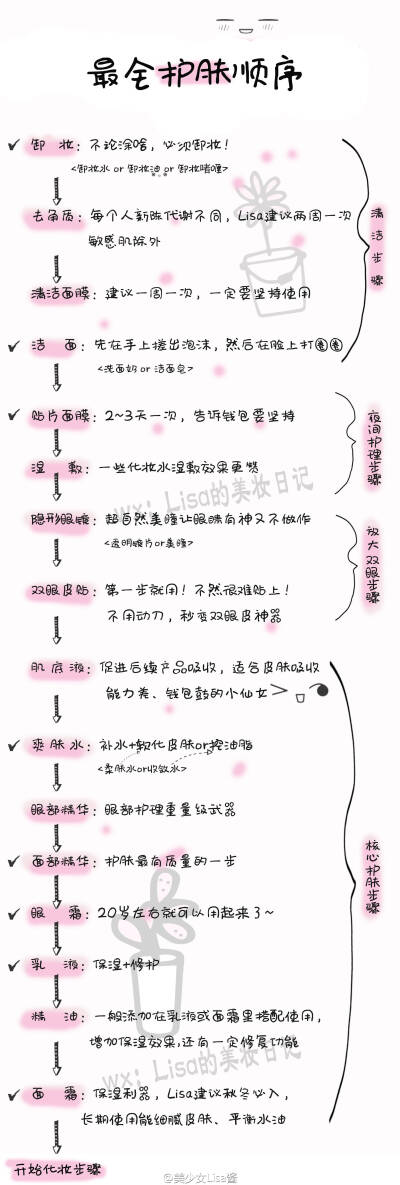 最全护肤顺序
卸 妆：不论涂啥，必须卸妆！
<卸妆水 or 卸妆油 or 卸妆啫喱>
去角质：每个人新陈代谢不同，Lisa建议两周一次
敏感肌除外
清洁面膜：建议一周一次，一定要坚持使用
洁 面：先在手上搓出泡沫，然后在脸上打圈圈
<洗面奶 or 洁面皂>
清洁步骤
贴片面膜：2~3天一次，告诉钱包要坚持
湿 敷：一些化妆水湿敷效果更赞
夜间护理步骤
wx：Lisa的美妆日记
隐形眼镜：超自然美瞳让眼睛有神又不做作
<透明镜片or美瞳>
双眼皮贴：第一步就用！不然很难贴上！
不用动刀，秒变双眼皮神器
放大双眼步骤
肌底液：促进后续产品吸收，适合皮肤吸收
能力差、钱包鼓的小仙女
爽肤水：补水+软化皮肤or控油脂
<柔肤水or收敛水>
眼部精华：眼部护理重量级武器
面部精华：护肤最有质量的一步
眼 霜：20岁左右就可以用起来了~
乳 液：保湿+修护
精 油：一般添加在乳液或面霜里搭配使用，
增加保湿效果,还有一定修复功能
wx：Lisa的美妆日记
面 霜：保湿利器，Lisa建议秋冬必入，
长期使用能细腻皮肤、平衡水油
核心护肤步骤
开始化妆步骤
@美少女Lisa酱